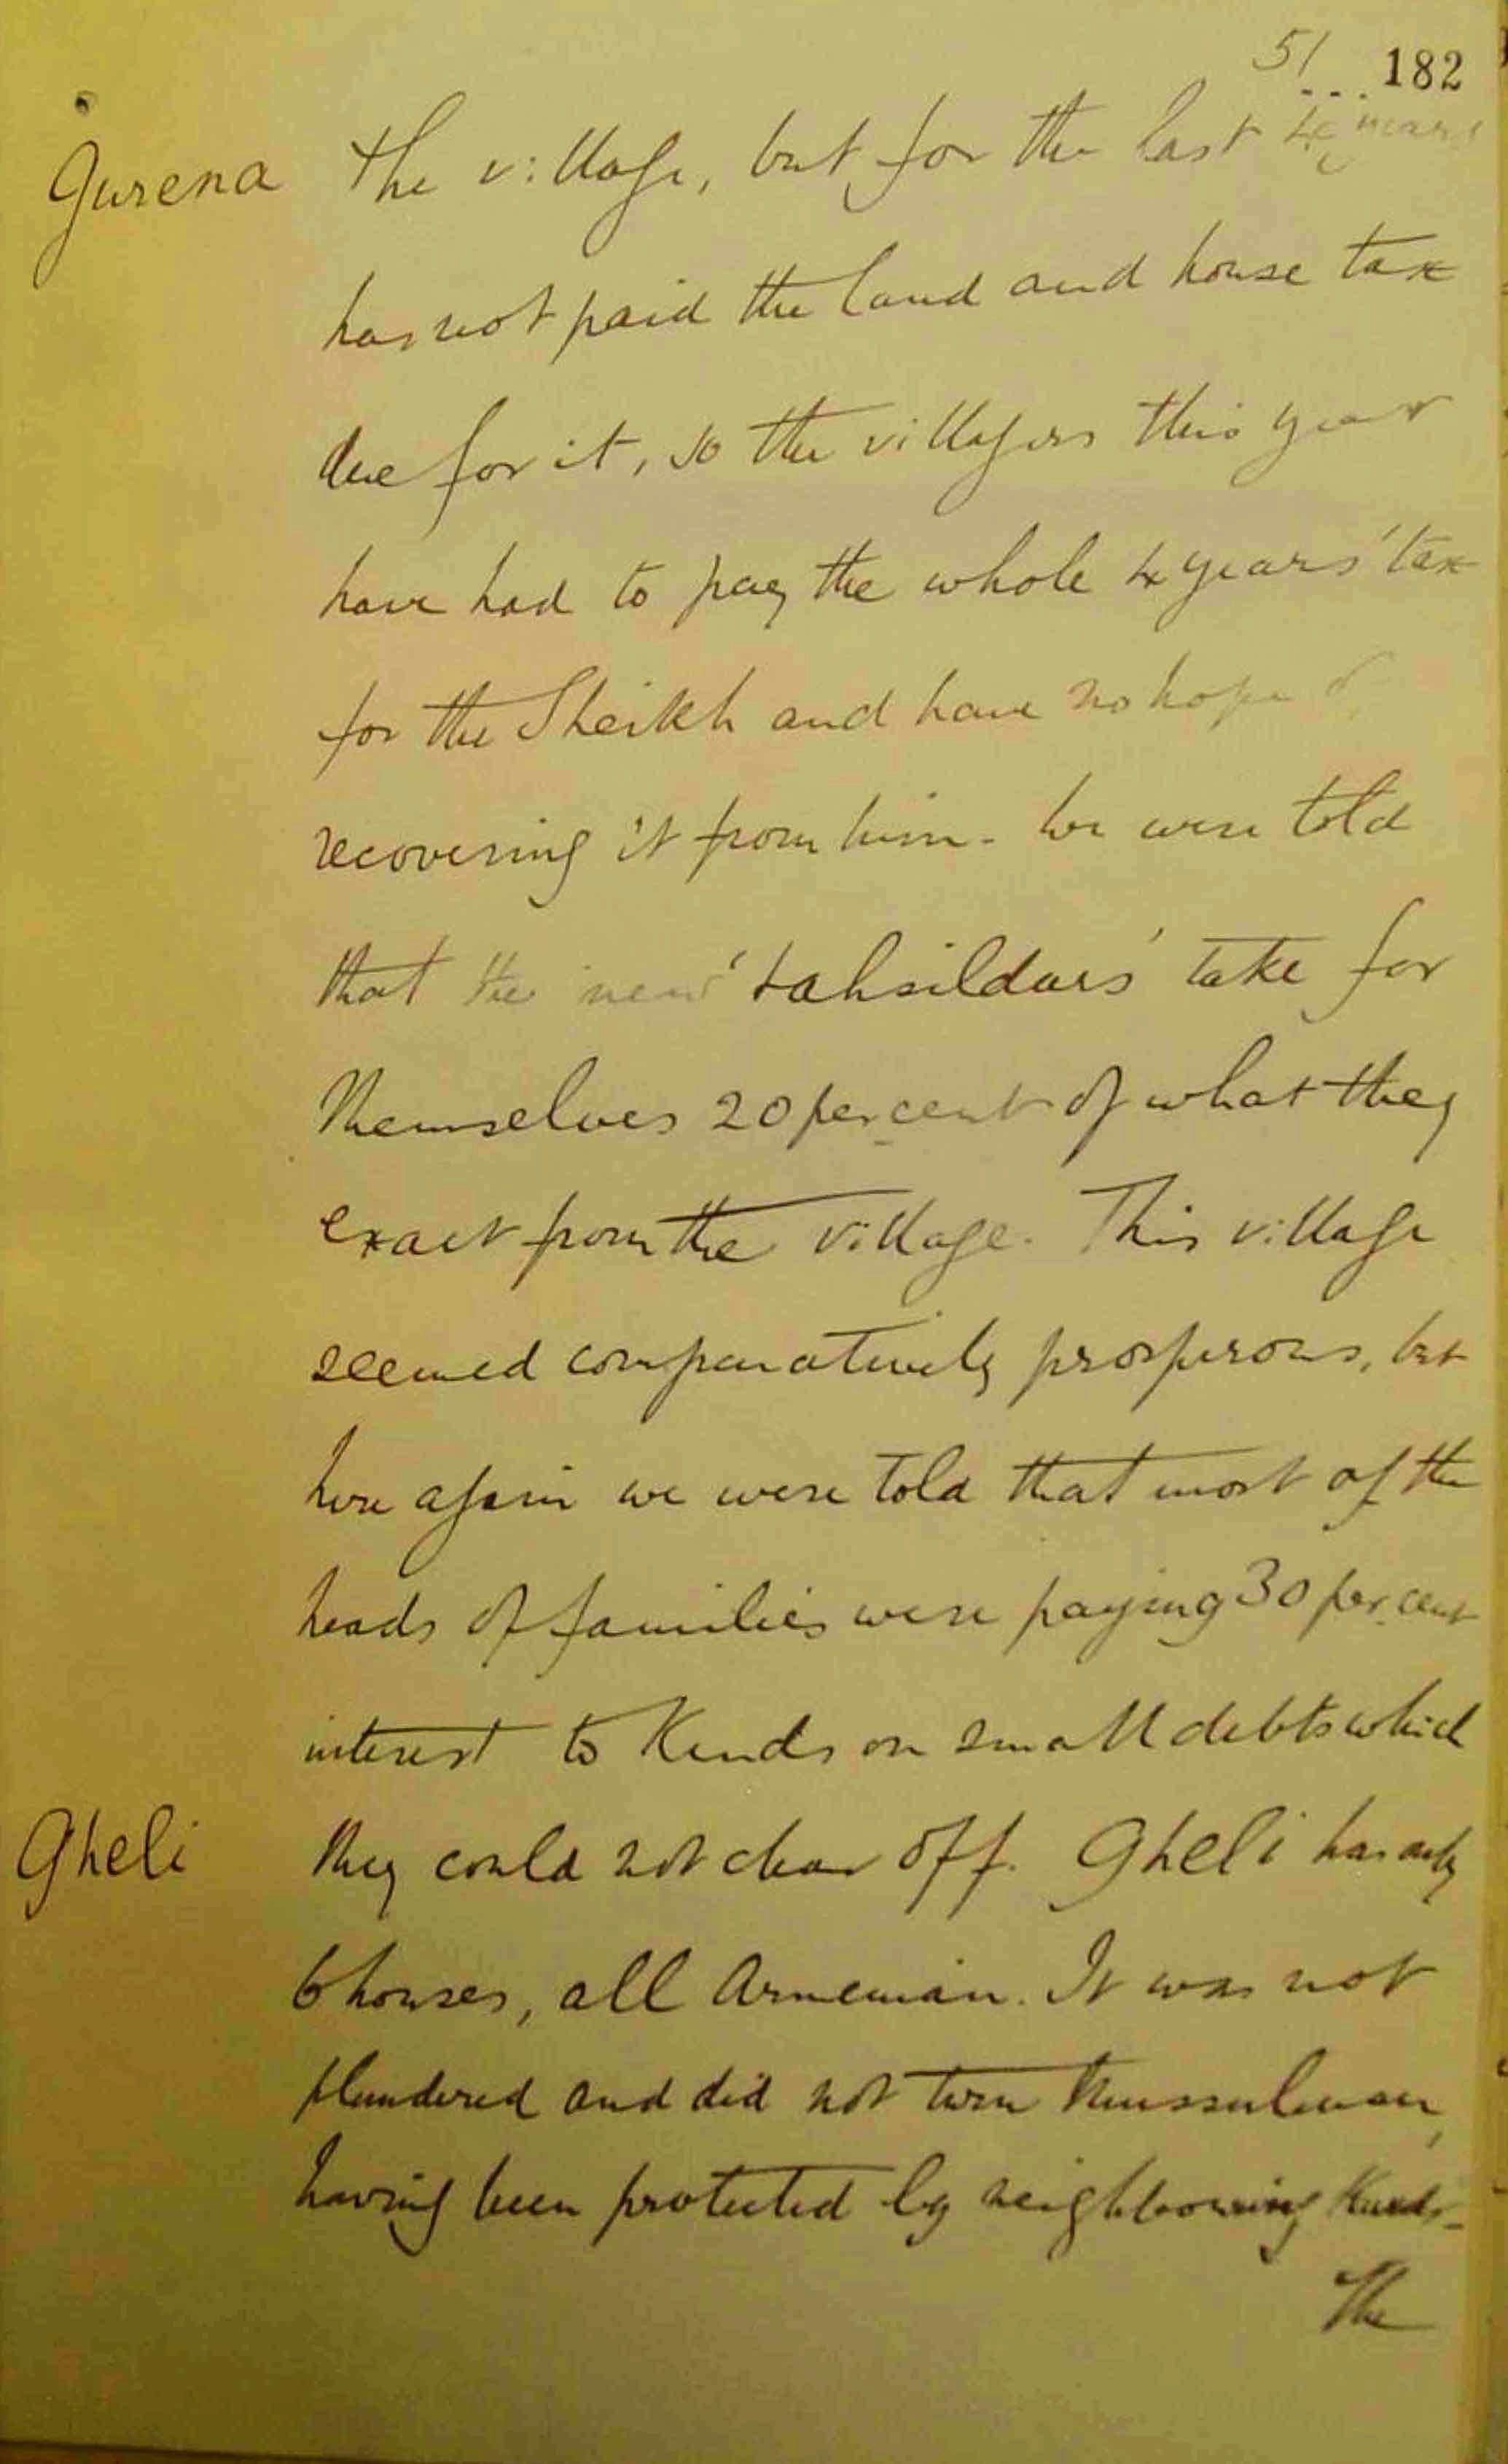 51 182
Gurena the village, but for the last 4 years
has not paid the land and house tax
due for it, so the villagers this year
have had to pay the whole 4 years' tax
for the Sheikh and have no hope of
recovering it from him. We were told
that the new 'tahsildars' take for
themselves 20 per cent of what they
exact from the village. This village
seemed comparatively prosperous, but
here again we were told that most of the
heads of families were paying 30 per cent
interest to Kurds on small debts which
Gheli they could not clear off. Gheli has only
6 houses, all Armenian. It was not
plundered and did not turn Mussulman,
having been protected by neighbouring Kurds.
The